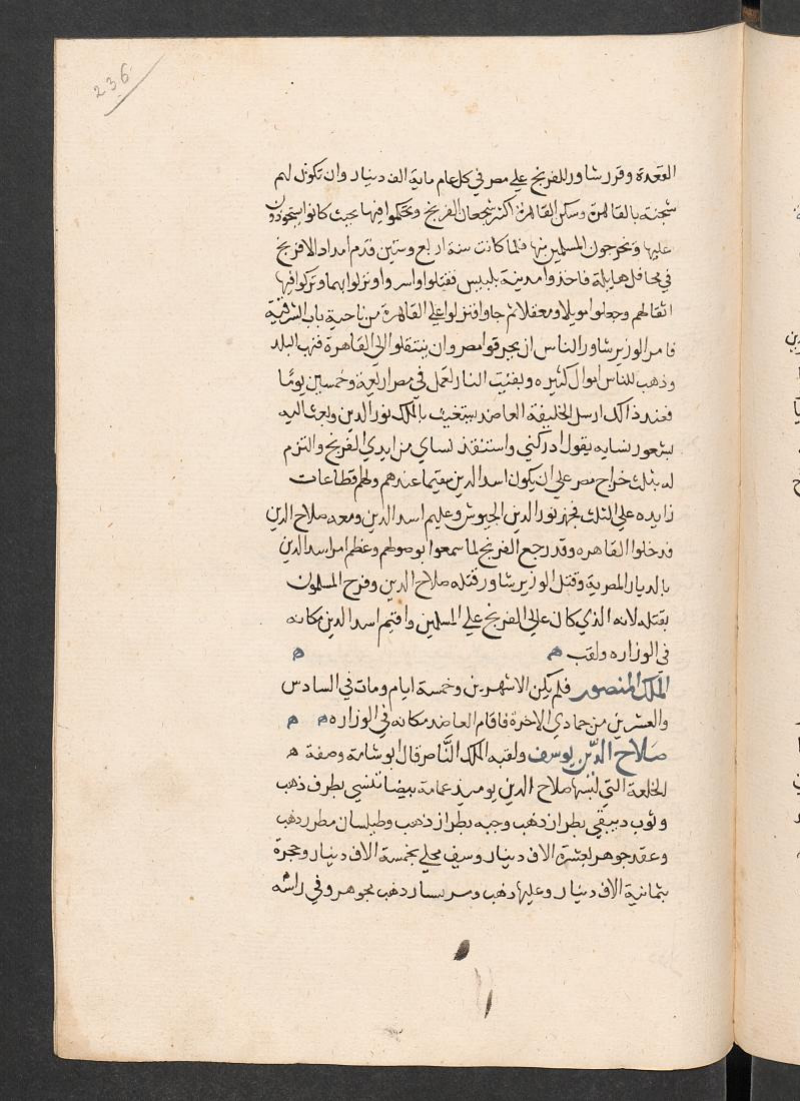 236
القعدة وقرر شاور للفرنج على مصر في كل عام ماية الف دينار وان تكون لهم
شحنة بالقاهرة وسكن القاهرة اكثر شجعان الفرنج وتحكموا فيها بحيث كانوا يستحوذون
عليها ويخرجون المسلمين منها فلما كانت سنة اربع وستين قدم امداد الافرنج
في محافل هايلة فاخذوا مدينة بلبيس فقتلوا واسروا ونزلوا بها وتركوا فيها
اثقالهم وجعلوا موبلا ومعقلا ثم جاوا فنزلوا على القاهرة من ناحية باب الشرقية
فامر الوزير شاور الناس ان يحرقوا مصر وان ينتقلوا الى القاهرة فنهب البلد
وذهب للناس اموال كثيره وبقيت النار تعمل في مصر اربعة وخمسين يومًا
فعند ذالك ارسل الخليفة العاضد يستغيث بالملك نور الدين وبعث اليه
بشعور نسايه يقول ادركني واستنقذ نساي من ايدي الفرنج والتزم
له بثلث خراج مصر على ان يكون اسد الدين مقيما عندهم ولهم قطاعات
زايده علي الثلث فجهز نور الدين الجيوش وعليهم اسد الدين ومعه صلاح الدين
فدخلوا القاهره وقد رجع الفرنج لما سمعوا بوصولهم وعظم امر اسد الدين
بالديار المصرية وقتل الوزير شاور قتله صلاح الدين وفرح المسلمون
بقتله لانه الذي كان يمالي الفرنج علي المسلمين واقيم اسد الدين مكانه
في الوزاره ولقب ه ه
الملك المنصور فلم يكن الا شهرين وخمسة ايام ومات في السادس
والعشرين من جمادي الاخرة فاقام العاضد مكانه في الوزاره ه ه
صلاح الدين يوسف ولقبه الملك الناصر قال ابو شامة وصفة ه
الخلعة التي لبسها صلاح الدين يوميذ عمامة بيضا تنيسي بطرف ذهب
وثوب دبيقي بطراز ذهب وجبه بطراز ذهب وطيلسان مطرز ذهب
وعقد جوهر بعشرة الاف دينار وسيف محلي بخمسة الاف دينار وحجرة
بثمانية الاف دينار وعليها ذهب وسرفسار ذهب مجوهر وفي راسه